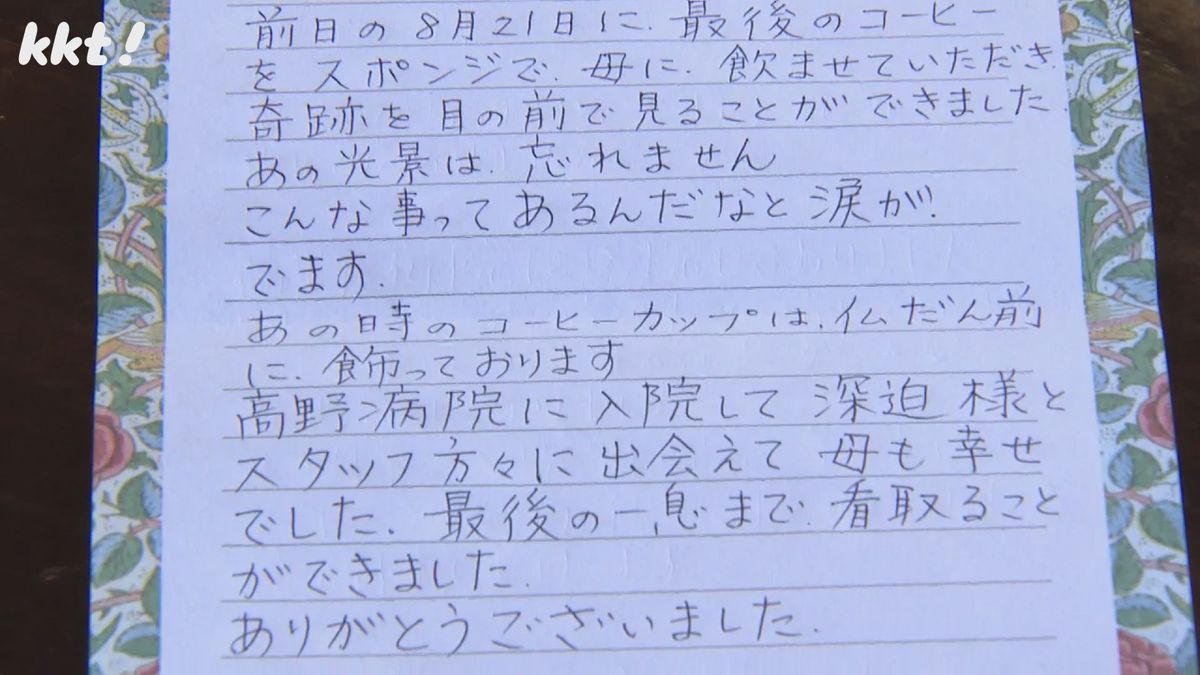 kkt!
前日の8月21日に、最後のコーヒー
を スポンジで、母に、飲ませていただき、
奇跡を目の前で見ることができました。
あの光景は、忘れません
こんな事ってあるんだなと涙が、
でます。
あの時のコーヒーカップは、仏だん前
に、飾っております
高野病院に入院して深迫様と
スタッフ方々に出会えて母も幸せ
でした、最後の一息まで、看取ること
ができました。
ありがとうございました。